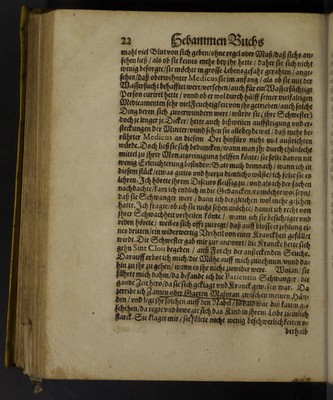 22 Hebammen Buchs
mahl viel Blut von sich geben / ohne regel oder Maß / daß sichs an-
sehen ließ / als ob sie keines mehr bey ihr hette / daher sie sich nicht
wenig besorgte / sie möchte in grosse Lebensgefahr gerahten / ange-
sehen / daß oberwehnte Medicus sie im anfang / als ob sie mit der
Wassersucht behafftet were / ersehen / auch für ein Wassersüchtige
Person curiret hette / und ob er wol durch hülff seiner vielfaltigen
Medicamenten sehr viel Feuchtigkeit von ihr getrieben / auch solche
Ding deren sich zuverwundern were / würde sie (ihre Schwester)
doch je lenger je Dicker / hette auch bißweilen auffsteigung und er-
steckungen der Mutter / und sehen sie alle beyde wol / daß mehr be-
rührter Medicus an diesem Ort hinfüro nicht viel außrichten
würde. Doch ließ sie sich bedüncken / wann man ihr durch thunliche
mittel zu ihrer Monatreinigung helffen könte / sie solte davon mit
wenig Erleuchterung befinden: Bate mich demnach / wann ich in
diesem stück / etwas gutes und hierzu dienlich wüste / ich solte sie es
lehren. Ich hörete ihrem Discurs fleissig zu / und als ich der sachen
nachdachte / kam ich entlich in die Gedancken es möchte wol seyn /
daß sie Schwanger were / dann ich dergleichen wol mehr gesehen
hatte. Ich fragte: ob ich sie nicht sehen möchte / damit ich recht von
ihrer Schwachheit urtheilen könte / wann ich sie besichtigte und
reden hörete / weilen sich offt zutregt / daß auff blosse erzehlung ei-
nes dritten / ein widerwertig Urtheil von einer Kranckheit gefället
wird. Die Schwester gab mir zur antwort: die Krancke hette sich
gehn Sint Clou begeben / auß Forcht der ansteckenden Seuche.
Darauff erbot ich mich / die Mühe auff mich zunehmen / und da-
hin zu ihr zu gehen / wann es ihr nicht zuwider were. Wolan / sie
führte mich dahin / da befande ich die Patientin Schwanger die
gantze Zeit hero / da sie sich geklagt und Kranck gewesen war. Da
zerribe ich Zamen oder Garten Majoran zwischen meinen Hän-
den / und legt ihr solchen auff den Nabel / so bald war diß kaum ge-
schehen / da regte und bewegte sich das Kind in ihrem Leibe zimlich
starck. Sie klagte mir / sie fühlete nicht wenig beschwerlichkeiten o-
berhalb